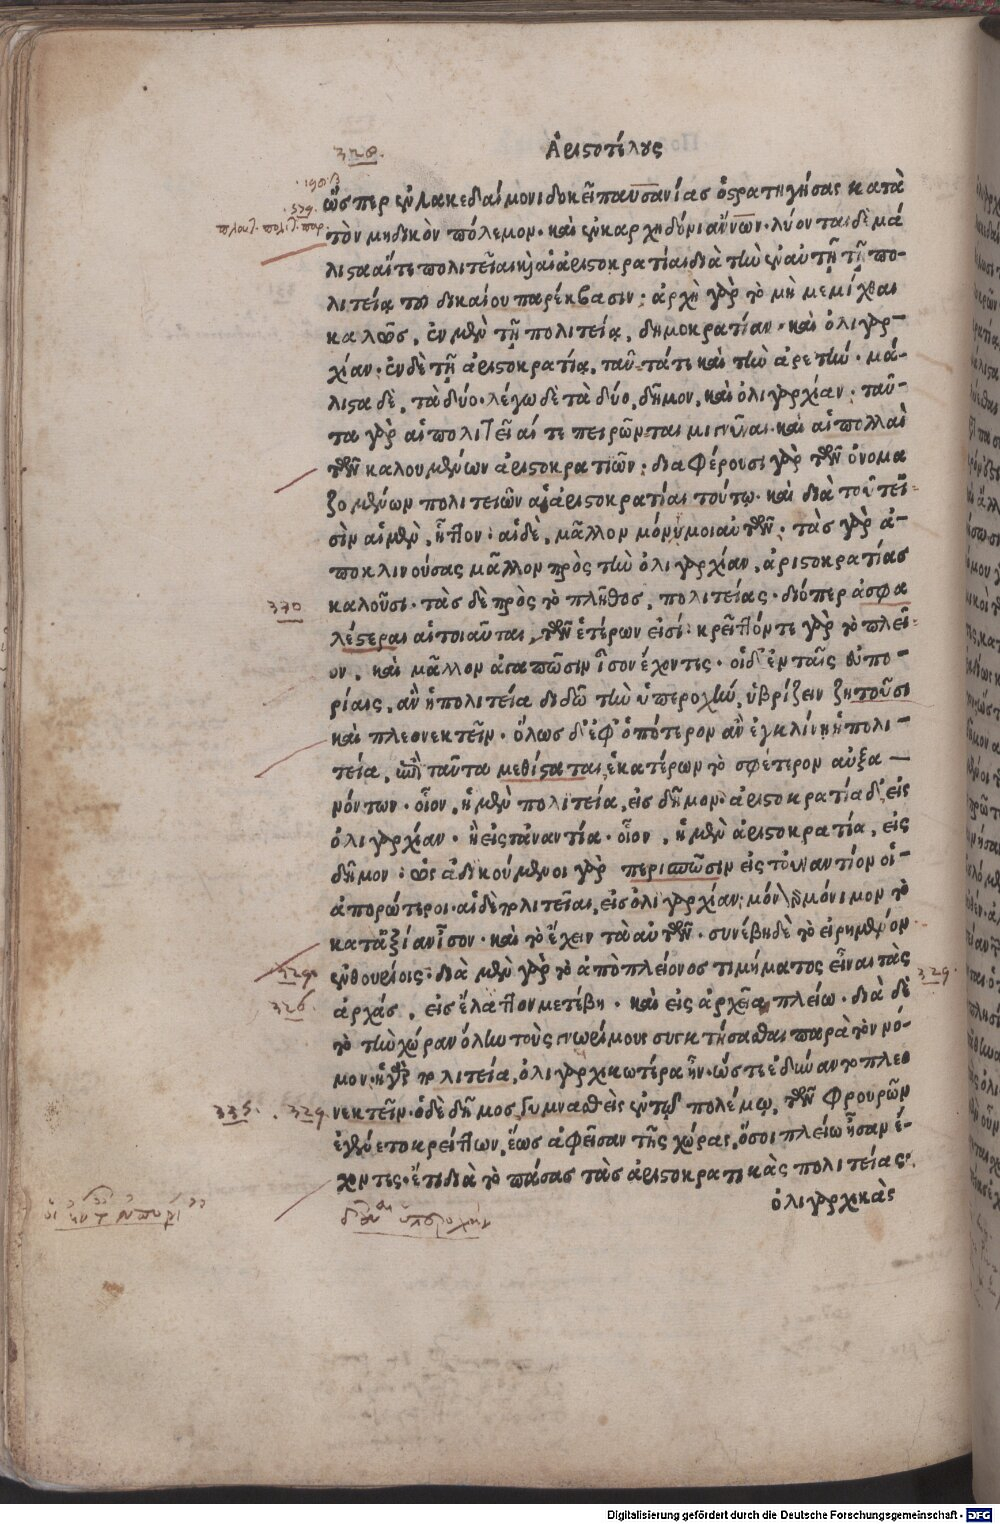 328.
Ἀριστοτέλους
ὥσπερ ἐν λακεδαίμονι δοκεῖ παυσανίας ὁ στρατηγήσας κατὰ
329.
τὸν μηδικὸν πόλεμον· καὶ ἐν καρχηδόνι ἄννων· λύονται δὲ μά
λιστα αἵ τε πολιτεῖαι καὶ αἱ ἀριστοκρατίαι διὰ τὴν ἐν αὐτῇ τῇ πο-
λιτείᾳ τοῦ δικαίου παρέκβασιν· ἀρχὴ γὰρ τὸ μὴ μεμίχθαι
καλῶς, ἐν μὲν τῇ πολιτείᾳ, δημοκρατίαν· καὶ ὀλιγαρ-
χίαν· ἐν δὲ τῇ ἀριστοκρατίᾳ, ταῦτά τε καὶ τὴν ἀρετήν· μά-
λιστα δὲ, τὰ δύο· λέγω δὲ τὰ δύο, δῆμον, καὶ ὀλιγαρχίαν· ταῦ-
τα γὰρ αἱ πολιτεῖαί τε πειρῶνται μιγνύναι· καὶ αἱ πολλαὶ
τῶν καλουμένων ἀριστοκρατιῶν· διαφέρουσι γὰρ τῶν ὀνομα
ζομένων πολιτειῶν αἱ ἀριστοκρατίαι τούτῳ· καὶ διὰ τοῦτ εἰ-
σὶν αἱ μὲν, ἧττον· αἱ δὲ, μᾶλλον μόνιμοι αὐτῶν· τὰς γὰρ ἀ-
ποκλινούσας μᾶλλον πρὸς τὴν ὀλιγαρχίαν, ἀριστοκρατίας
370
καλοῦσι· τὰς δὲ πρὸς τὸ πλῆθος, πολιτείας· διόπερ ἀσφα
λέστεραι αἱ τοιαῦται, τῶν ἑτέρων εἰσί· κρεῖττόν τε γὰρ τὸ πλεῖ-
ον, καὶ μᾶλλον ἀγαπῶσιν ἴσον ἔχοντες· οἱ δ' ἐν ταῖς εὐπο-
ρίαις, ἂν ἡ πολιτεία διδῷ τὴν ὑπεροχήν, ὑβρίζειν ζητοῦσι
καὶ πλεονεκτεῖν· ὅλως δ' ἐφ' ὁπότερον ἂν ἐγκλίνῃ ἡ πολι-
τεία, ἐπὶ ταῦτα μεθίσταται, ἑκατέρων τὸ σφέτερον αὐξα-
νόντων· οἷον, ἡ μὲν πολιτεία, εἰς δῆμον· ἀριστοκρατία δ' εἰς
ὀλιγαρχίαν· ἢ εἰς τἀναντία· οἷον, ἡ μὲν ἀριστοκρατία, εἰς
δῆμον· ὡς ἀδικούμενοι γὰρ περισπῶσιν εἰς τοὐναντίον οἱ-
ἀπορώτεροι· αἱ δὲ πολιτεῖαι, εἰς ὀλιγαρχίαν· μόνον γὰρ μόνιμον τὸ
κατ' ἀξίαν ἴσον· καὶ τὸ ἔχειν τὰ αὑτῶν· συνέβη δὲ τὸ εἰρημένον
329.
ἐν θουρίοις· διὰ μὲν γὰρ τὸ ἀπὸ πλείονος τιμήματος εἶναι τὰς
329.
326.
ἀρχάς, εἰς ἔλαττον μετέβη· καὶ εἰς ἀρχεῖα πλείω· διὰ δὲ
τὸ τὴν χώραν ὅλην τοὺς γνωρίμους συγκτήσασθαι παρὰ τὸν νό-
μον· ἡ γὰρ πολιτεία, ὀλιγαρχικωτέρα ἦν· ὥστε ἐδύναντο πλεο
335. 329.
νεκτεῖν· ὁ δὲ δῆμος γυμνασθεὶς ἐν τῷ πολέμῳ, τῶν φρουρῶν
ἐγένετο κρείττων, ἕως ἀφεῖσαν τῆς χώρας, ὅσοι πλείω ἦσαν ἔ-
χοντες· ἔτι διὰ τὸ πάσας τὰς ἀριστοκρατικὰς πολιτείας
ὀλιγαρχικὰς
ὑπεροχὴν